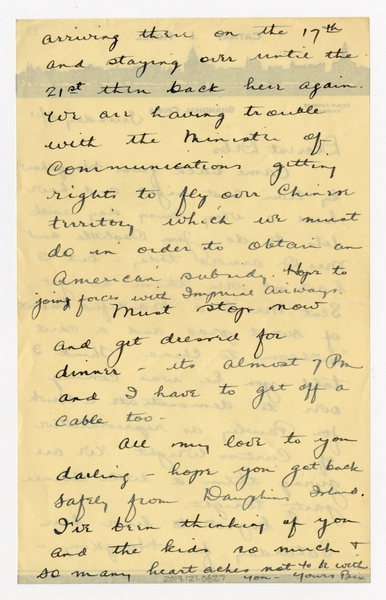 arriving there on the 17th
and staying over until the
21st then back here again.
We are having trouble
with the Minister of
Communications getting
rights to fly over Chinese
territory which we must
do in order to obtain an
American subsidy. Hope to
joing forces with Imperial Airways.
Must stop now
and get dressed for
dinner - its almost 7 PM
and I have to get off a
cable too -
All my love to you
darling - hope you got back
safely from Dauphin Island.
I've been thinking of you
and the kids so much &
so many heart aches not to be with
you - Yours Bix
2019.121.0627